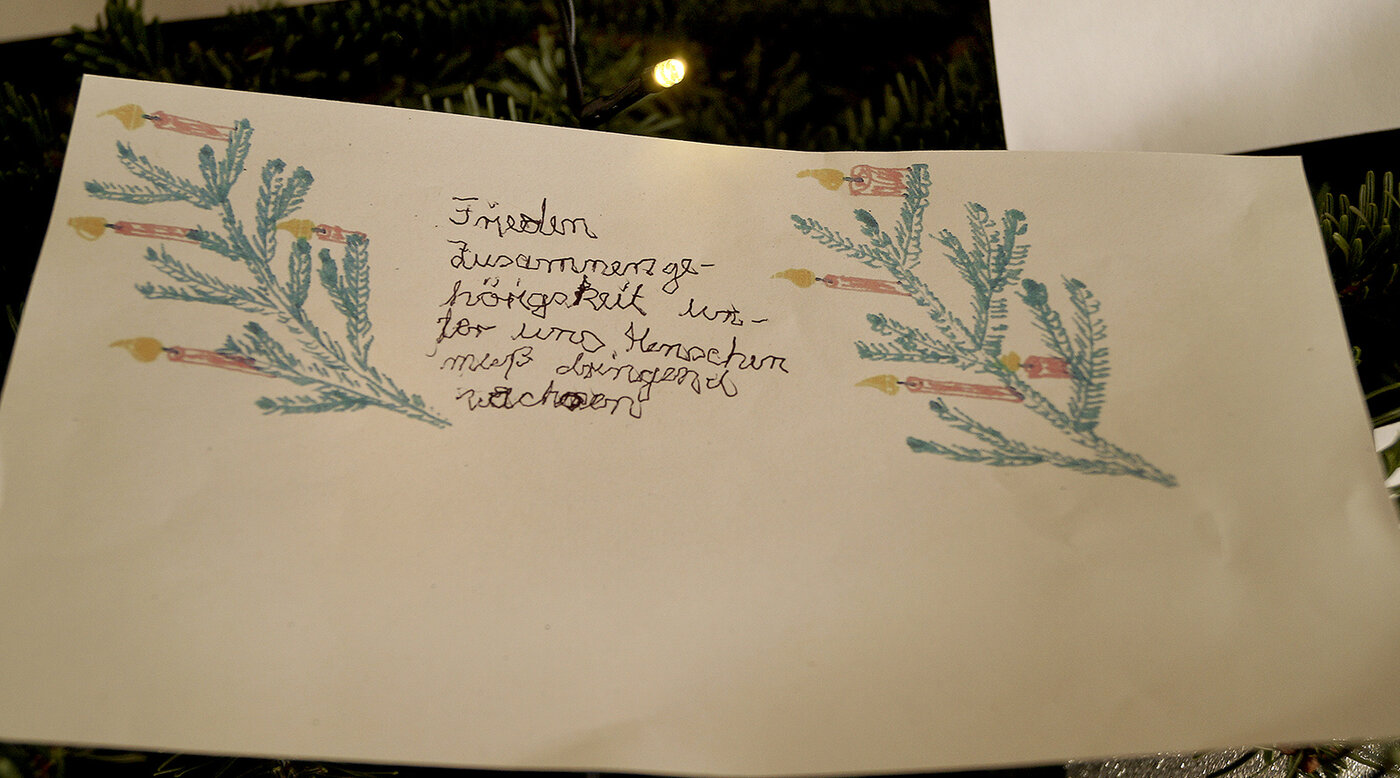 Frieden
Zusammenge-
hörigskeit un-
ter uns Menschen
muß dringend
wachsen